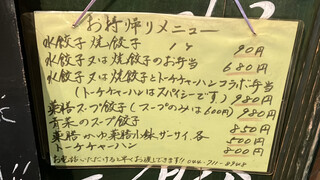 お持帰りメニュー
水餃子 焼餃子 1ヶ 90円
水餃子又は焼餃子のお弁当 680円
水餃子又は焼餃子とトーチャーハンコラボ弁当
(トーチャーハンはスパイシーです) 980円
薬膳スープ餃子(スープのみは600円) 980円
青菜のスープ餃子 850円
薬膳かゆ 薬膳小鉢 各 500円
トーチチャーハン 800円
お電話いただけると早くお渡しできます!! 044-911-8948